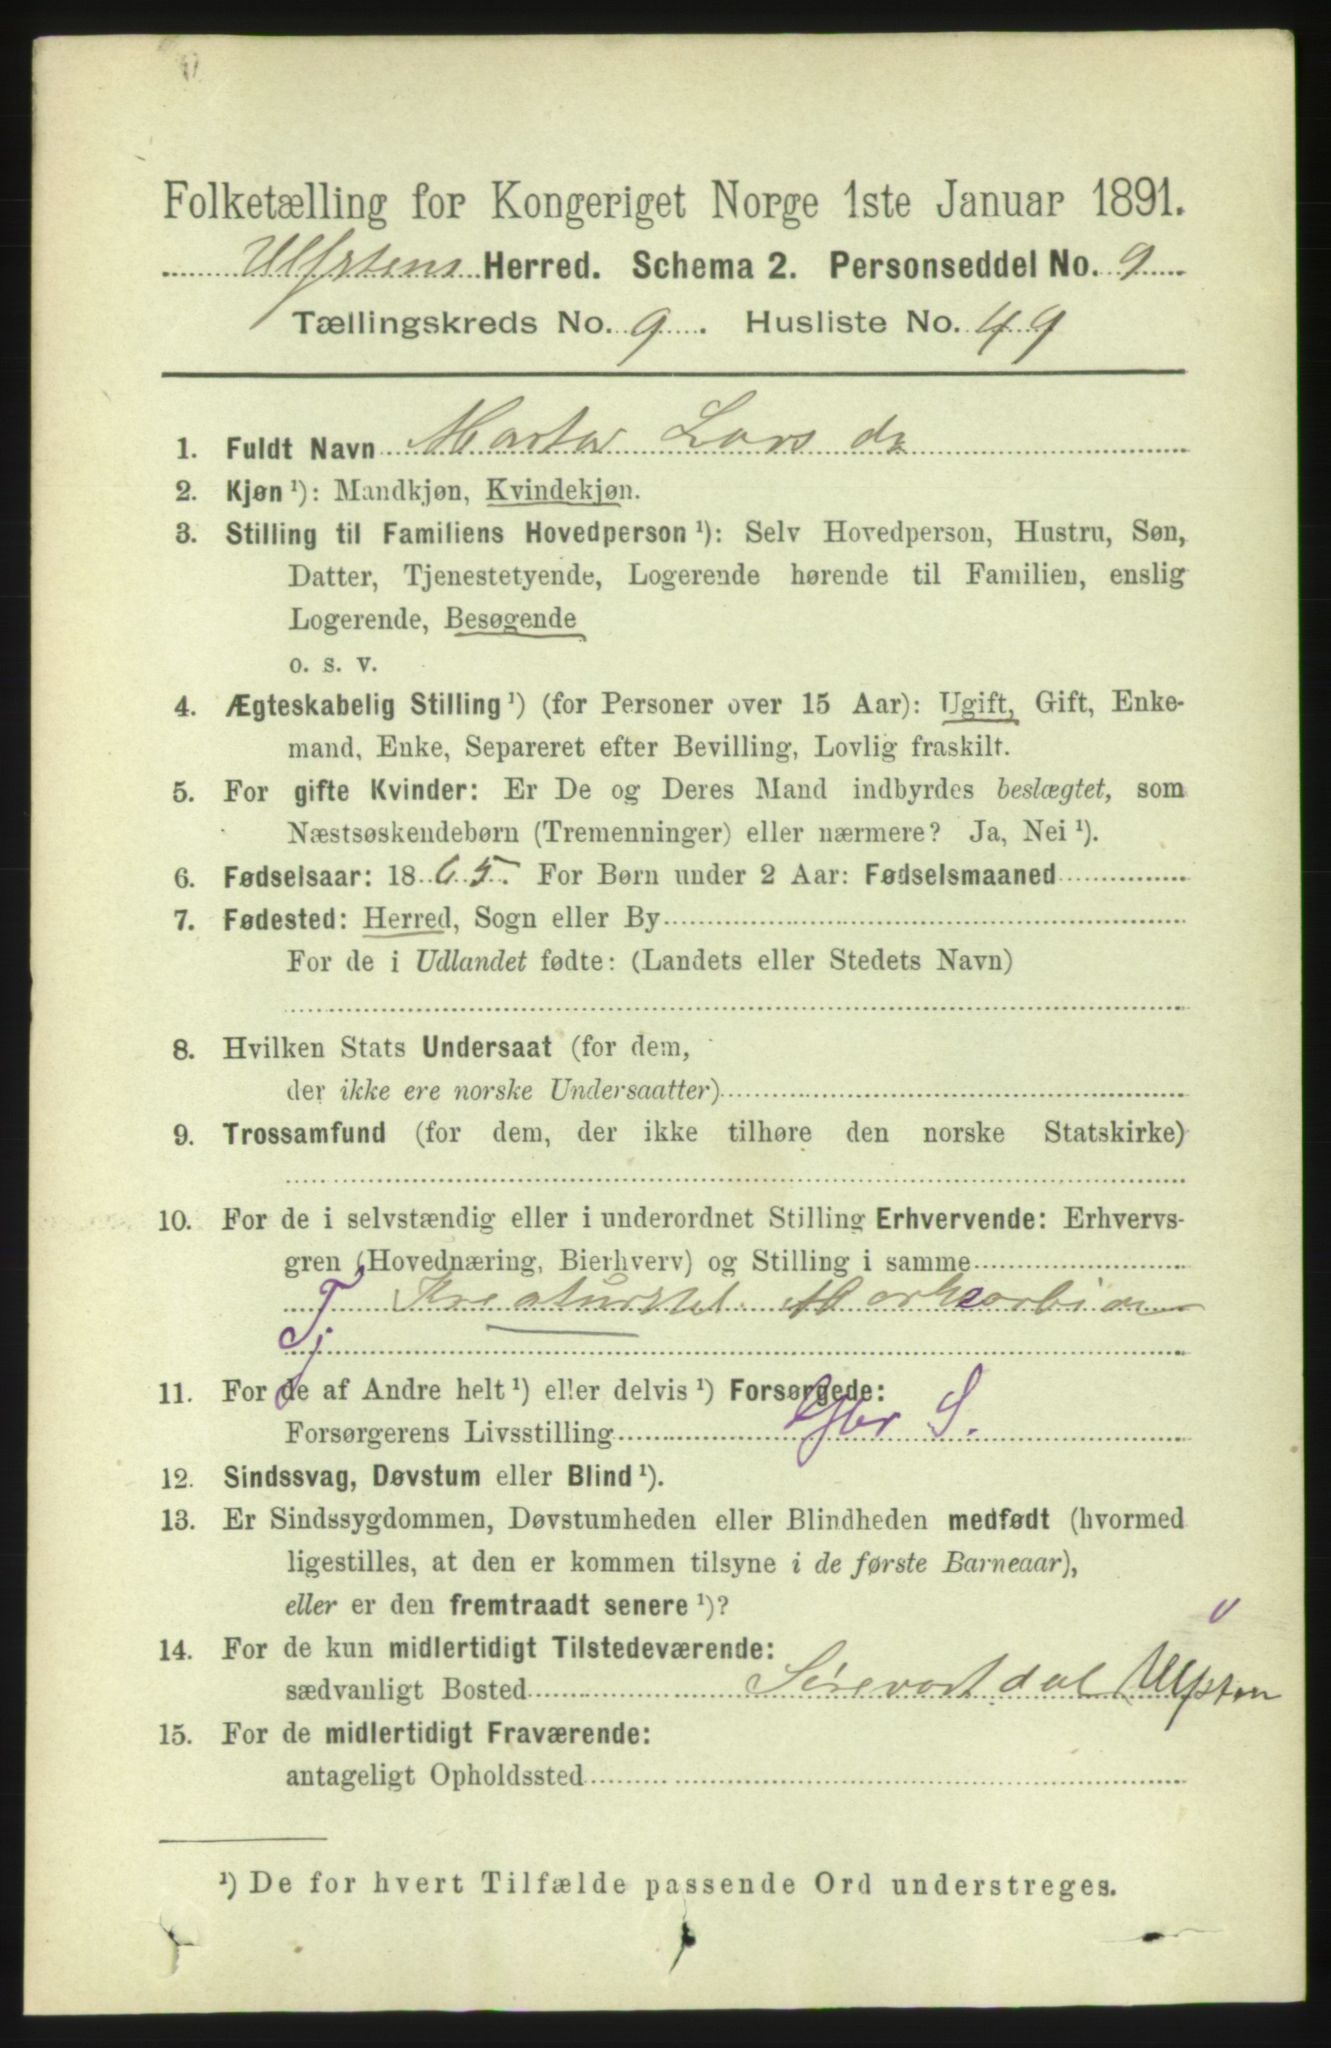 Folketælling for Kongeriget Norge 1ste Januar 1891.
Ulfstens Herred. Schema 2. Personseddel No. 9
Tællingskreds No. 9. Husliste No. 49
1. Fuldt Navn Marta Lars dr
2. Kjøn ¹): Mandkjøn, Kvindekjøn.
3. Stilling til Familiens Hovedperson ¹): Selv Hovedperson, Hustru, Søn,
Datter, Tjenestetyende, Logerende hørende til Familien, enslig
Logerende, Besøgende
o. s. v.
4. Ægteskabelig Stilling ¹) (for Personer over 15 Aar): Ugift, Gift, Enke-
mand, Enke, Separeret efter Bevilling, Lovlig fraskilt.
5. For gifte Kvinder: Er De og Deres Mand indbyrdes beslægtet, som
Næstsøskendebørn (Tremenninger) eller nærmere? Ja, Nei ¹).
6. Fødselsaar: 1865. For Børn under 2 Aar: Fødselsmaaned
7. Fødested: Herred, Sogn eller By
For de i Udlandet fødte: (Landets eller Stedets Navn)
8. Hvilken Stats Undersaat (for dem,
der ikke ere norske Undersaatter)
9. Trossamfund (for dem, der ikke tilhøre den norske Statskirke)
10. For de i selvstændig eller i underordnet Stilling Erhvervende: Erhvervs-
gren (Hovednæring, Bierhverv) og Stilling i samme
Tj. Kreaturstel
11. For de af Andre helt ¹) eller delvis ¹) Forsørgede:
Forsørgerens Livsstilling Gbr S.
12. Sindssvag, Døvstum eller Blind ¹).
13. Er Sindssygdommen, Døvstumheden eller Blindheden medfødt (hvormed
ligestilles, at den er kommen tilsyne i de første Barneaar),
eller er den fremtraadt senere ¹)?
14. For de kun midlertidigt Tilstedeværende:
sædvanligt Bosted Ulfsten
15. For de midlertidigt Fraværende:
antageligt Opholdssted
¹) De for hvert Tilfælde passende Ord understreges.